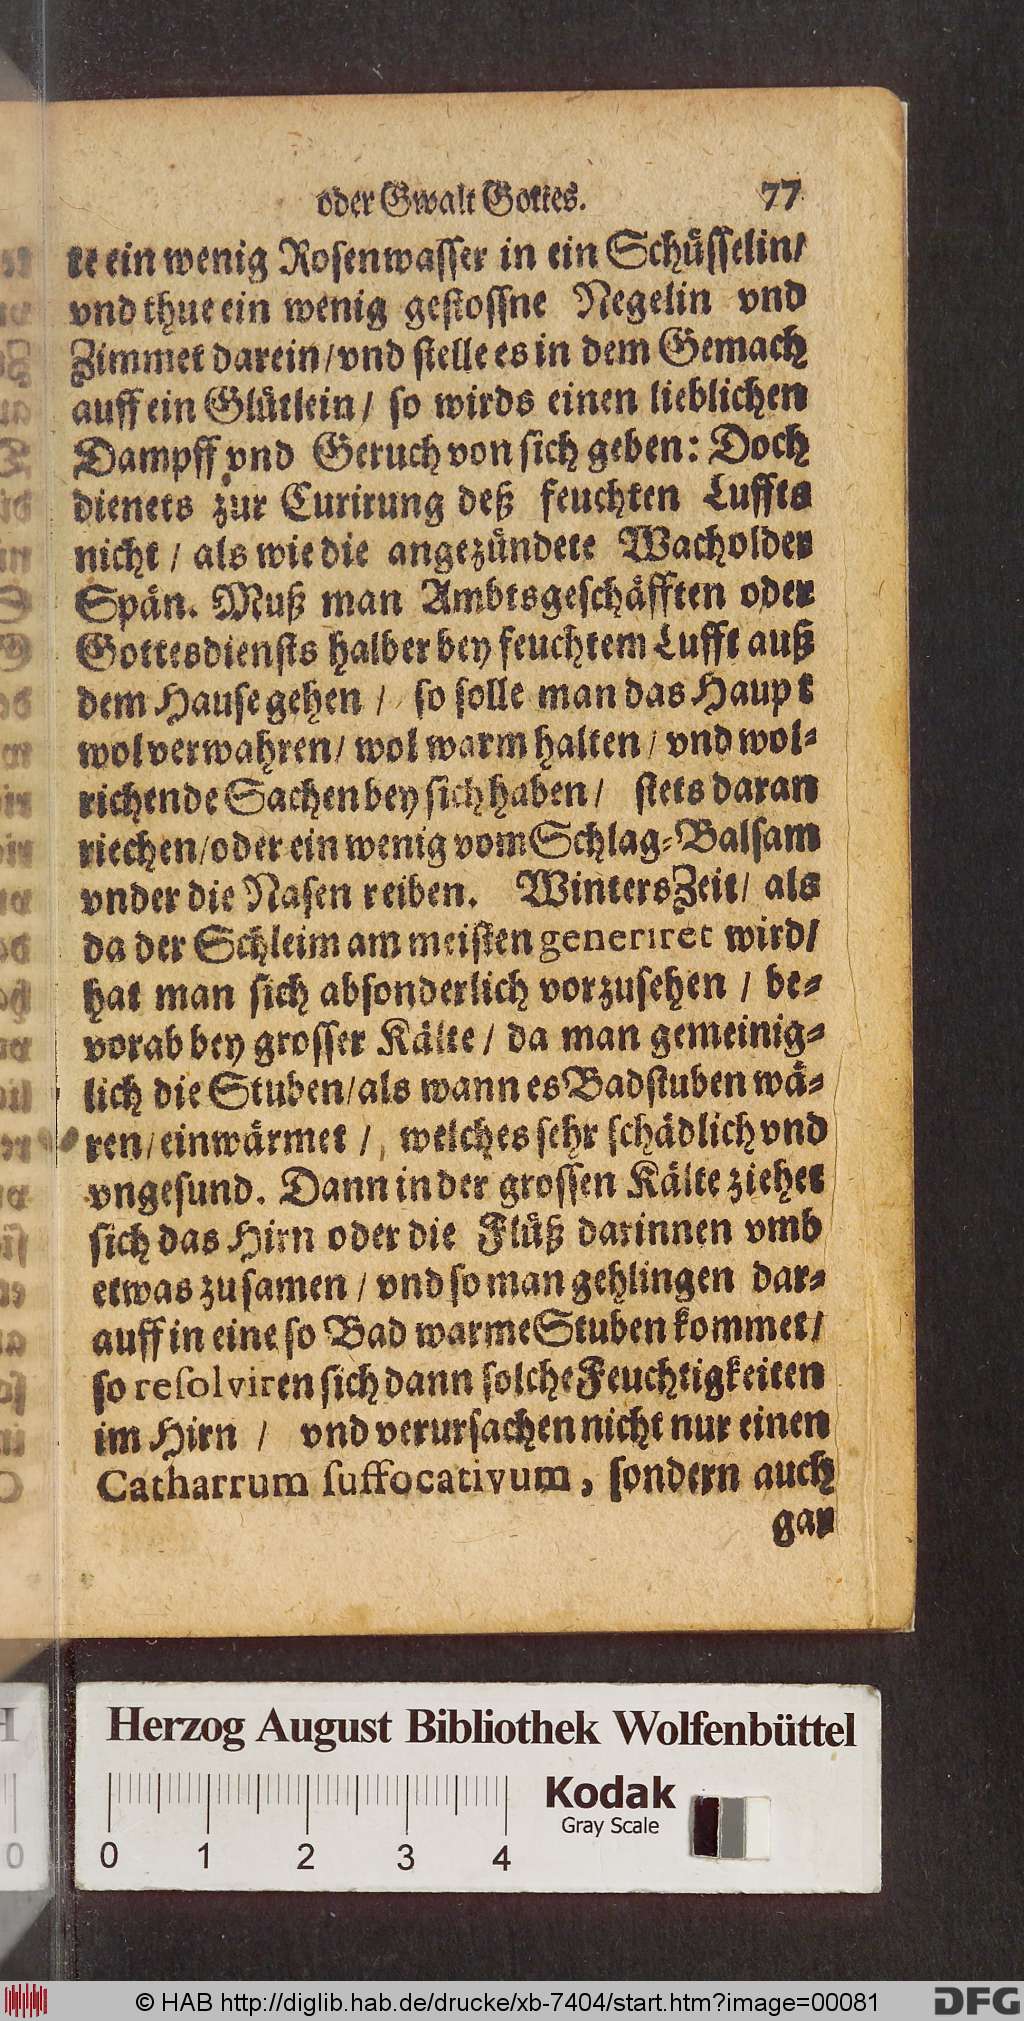 oder Gwalt Gottes. 77
te ein wenig Rosenwasser in ein Schüsselin/
vnd thue ein wenig gestossne Negelin vnd
Zimmet darein/vnd stelle es in dem Gemach
auff ein Glütlein/ so wirds einen lieblichen
Dampff vnd Geruch von sich geben: Doch
dienets zur Curirung deß feuchten Luffts
nicht / als wie die angezündete Wacholder
Spän. Muß man Ambtsgeschäfften oder
Gottesdiensts halber bey feuchtem Lufft auß
dem Hause gehen / so solle man das Haupt
wol verwahren/ wol warm halten / vnd wol-
richende Sachen bey sich haben / stets daran
riechen/oder ein wenig vom Schlag-Balsam
vnder die Nasen reiben. Winters Zeit/ als
da der Schleim am meisten generiret wird/
hat man sich absonderlich vorzusehen / be-
vorab bey grosser Kälte / da man gemeinig-
lich die Stuben/als wann es Badstuben wä-
ren/einwärmet /, welches sehr schädlich vnd
vngesund. Dann in der grossen Kälte ziehet
sich das Hirn oder die Flüß darinnen vmb
etwas zusamen / vnd so man gehlingen dar-
auff in eine so Bad warme Stuben kommet/
so resolviren sich dann solche Feuchtigkeiten
im Hirn / vnd verursachen nicht nur einen
Catharrum suffocativum, sondern auch
gar
Herzog August Bibliothek Wolfenbüttel
Kodak
Gray Scale
0 1 2 3 4
0
© HAB http://diglib.hab.de/drucke/xb-7404/start.htm?image=00081
DFG